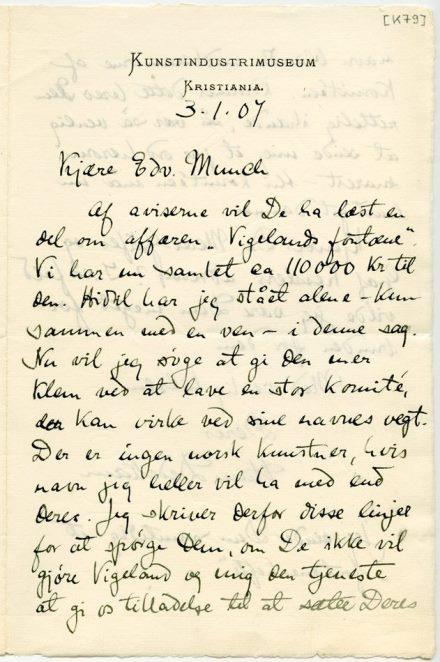 [K79]
KUNSTINDUSTRIMUSEUM
KRISTIANIA.
3.1.07
Kjære Edv. Munch
Af aviserne vil De ha læst en
del om affæren „Vigelands fontæne".
Vi har nu samlet ca 110000 Kr til
den. Hidtil har jeg stået alene – kun
sammen med en ven – i denne sag.
Nu vil jeg søge at gi den mer
klem ved at lave en stor komité,
der kan virke ved sine navnes vegt.
Der er ingen norsk kunstner, hvis
navn jeg heller vil ha med end
Deres. Jeg skriver derfor disse linjer
for at spørge Dem, om De ikke vil
gjøre Vigeland og mig den tjeneste
at gi os tilladelse til at sætte Deres